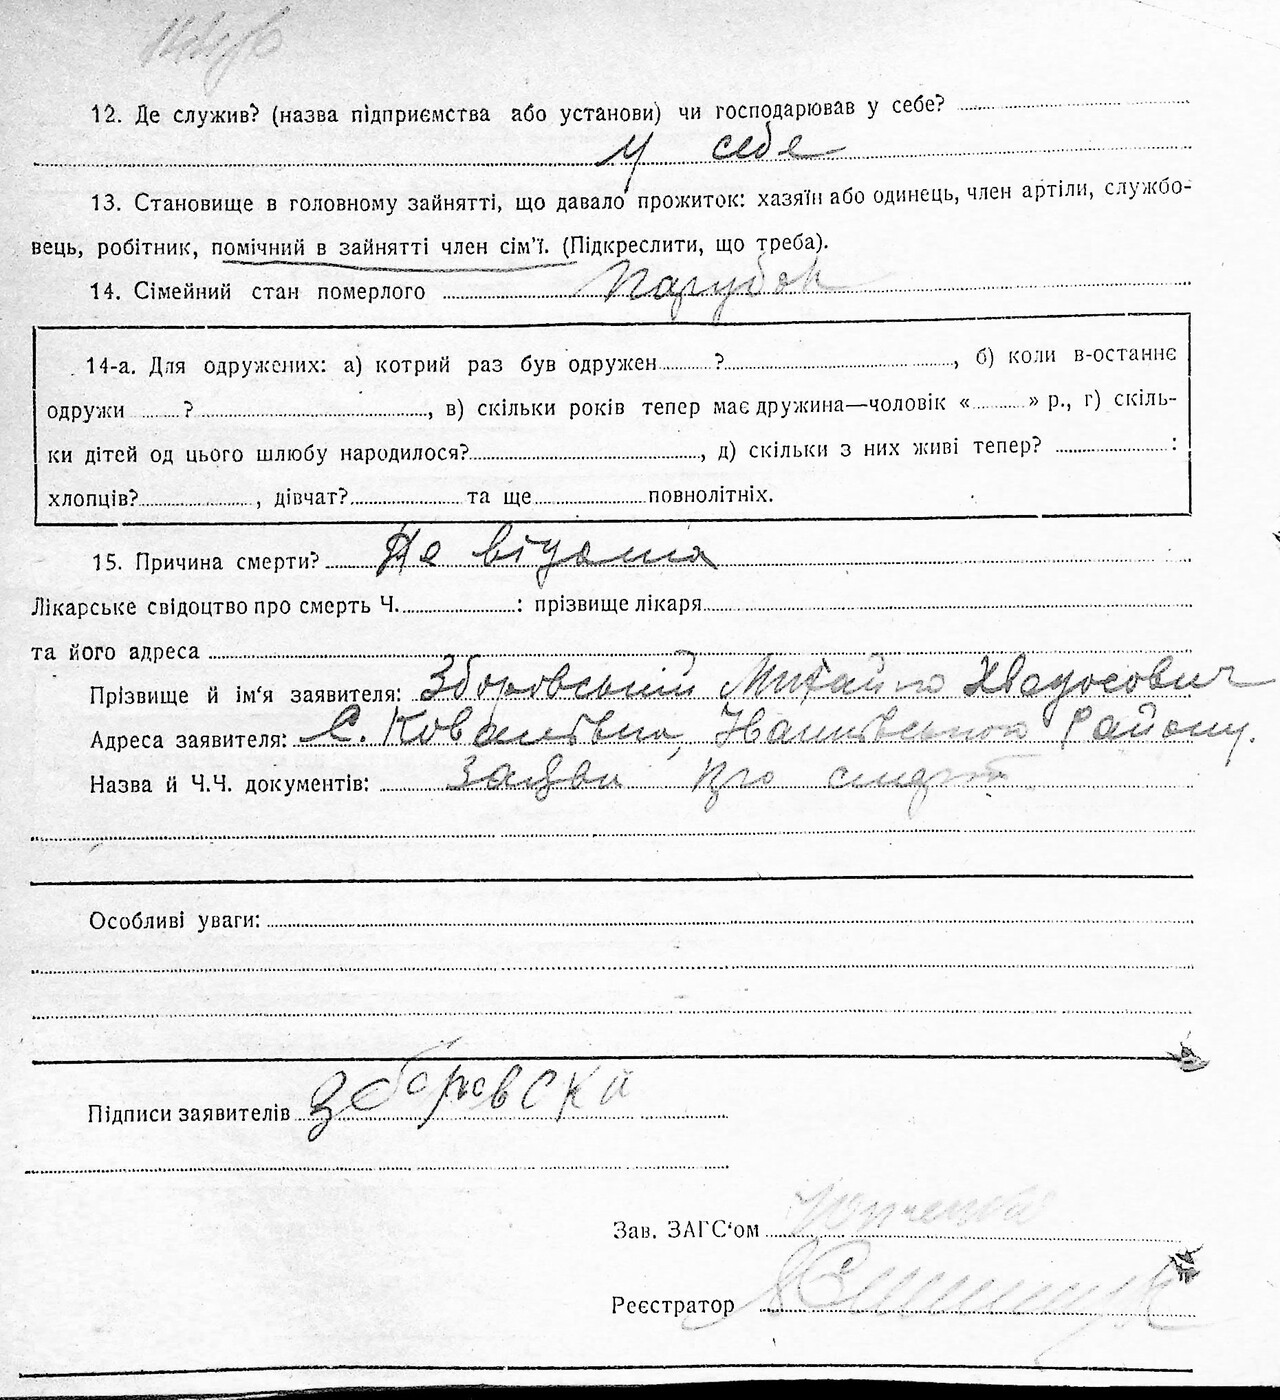 12. Де служив? (назва підприємства або установи) чи господарював у себе?
у себе
13. Становище в головному зайнятті, що давало прожиток: хазяїн або одинець, член артіли, службо-
вець, робітник, помічний в зайнятті член сім'ї. (Підкреслити, що треба).
14. Сімейний стан померлого Парубок
14-а. Для одружених: а) котрий раз був одружен ?, б) коли в-останнє
одружи ?, в) скільки років тепер має дружина—чоловік « » р., г) скіль-
ки дітей од цього шлюбу народилося?, д) скільки з них живі тепер? :
хлопців?, дівчат? та ще повнолітніх.
15. Причина смерти? Не відома
Лікарське свідоцтво про смерть Ч. : прізвище лікаря
та його адреса
Прізвище й ім'я заявителя: Зборовський Михайло
Адреса заявителя: С. Ковалівка, Району.
Назва й Ч.Ч. документів: Заява про смерть
Особливі уваги:
Підписи заявителів Зборовска
Зав. ЗАГС'ом
Реєстратор